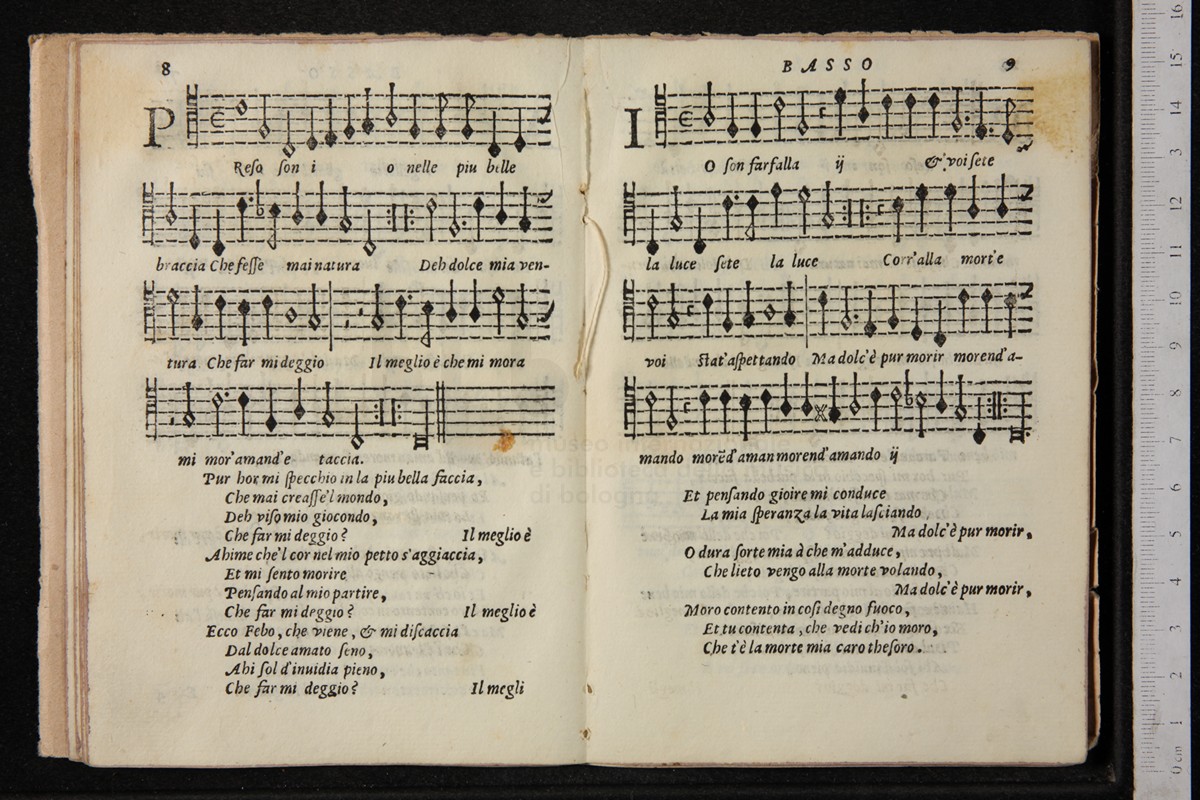 8
P
Reso son i o nelle piu belle
braccia Che fesse mai natura Deh dolce mia ven-
tura Che far mi deggio Il meglio è che mi mora
mi mor'amand'e taccia.
Pur hor mi specchio in la piu bella faccia,
Che mai creasse'l mondo,
Deh viso mio giocondo,
Che far mi deggio? Il meglio è
Ahime che'l cor nel mio petto s'aggiaccia,
Et mi sento morire
Pensando al mio partire,
Che far mi deggio? Il meglio è
Ecco Febo, che viene, & mi discaccia
Dal dolce amato seno,
Ahi sol d'inuidia pieno,
Che far mi deggio? Il megli
BASSO 9
I
O son farfalla ij & voi sete
la luce sete la luce Corr'alla mort'e
voi stat'aspettando Ma dolc'è pur morir morend'a-
mando morēd'aman morend'amando ij
Et pensando gioire mi conduce
La mia speranza la vita lasciando
Ma dolc'è pur morir,
O dura sorte mia à che m'adduce,
Che lieto vengo alla morte volando,
Ma dolc'è pur morir,
Moro contento in cosi degno fuoco,
Et tu contenta, che vedi ch'io moro,
Che t'è la morte mia caro thesoro.
museo
e biblioteca
di bologna
0 cm 1 2 3 4 5 6 7 8 9 10 11 12 13 14 15 16